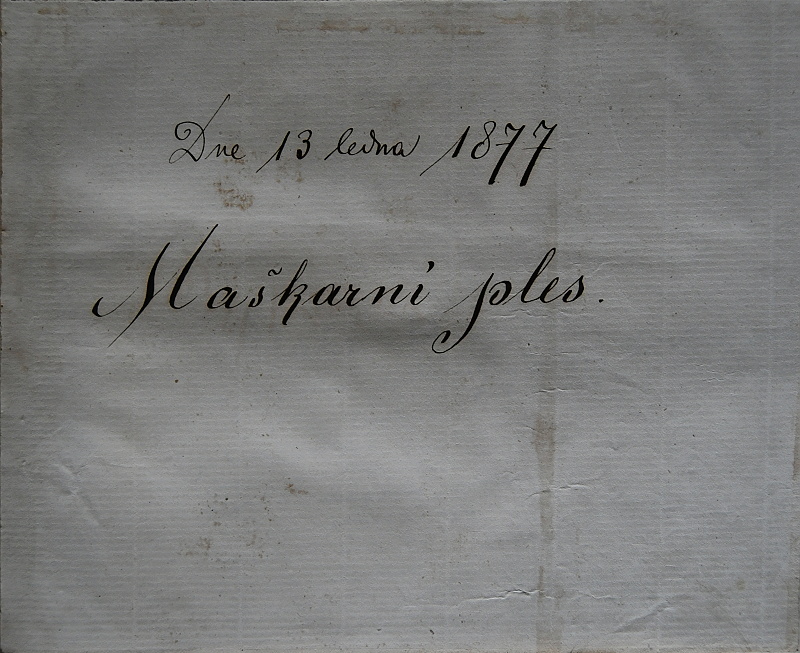 Dne 13 ledna 1877
Maškarní ples.